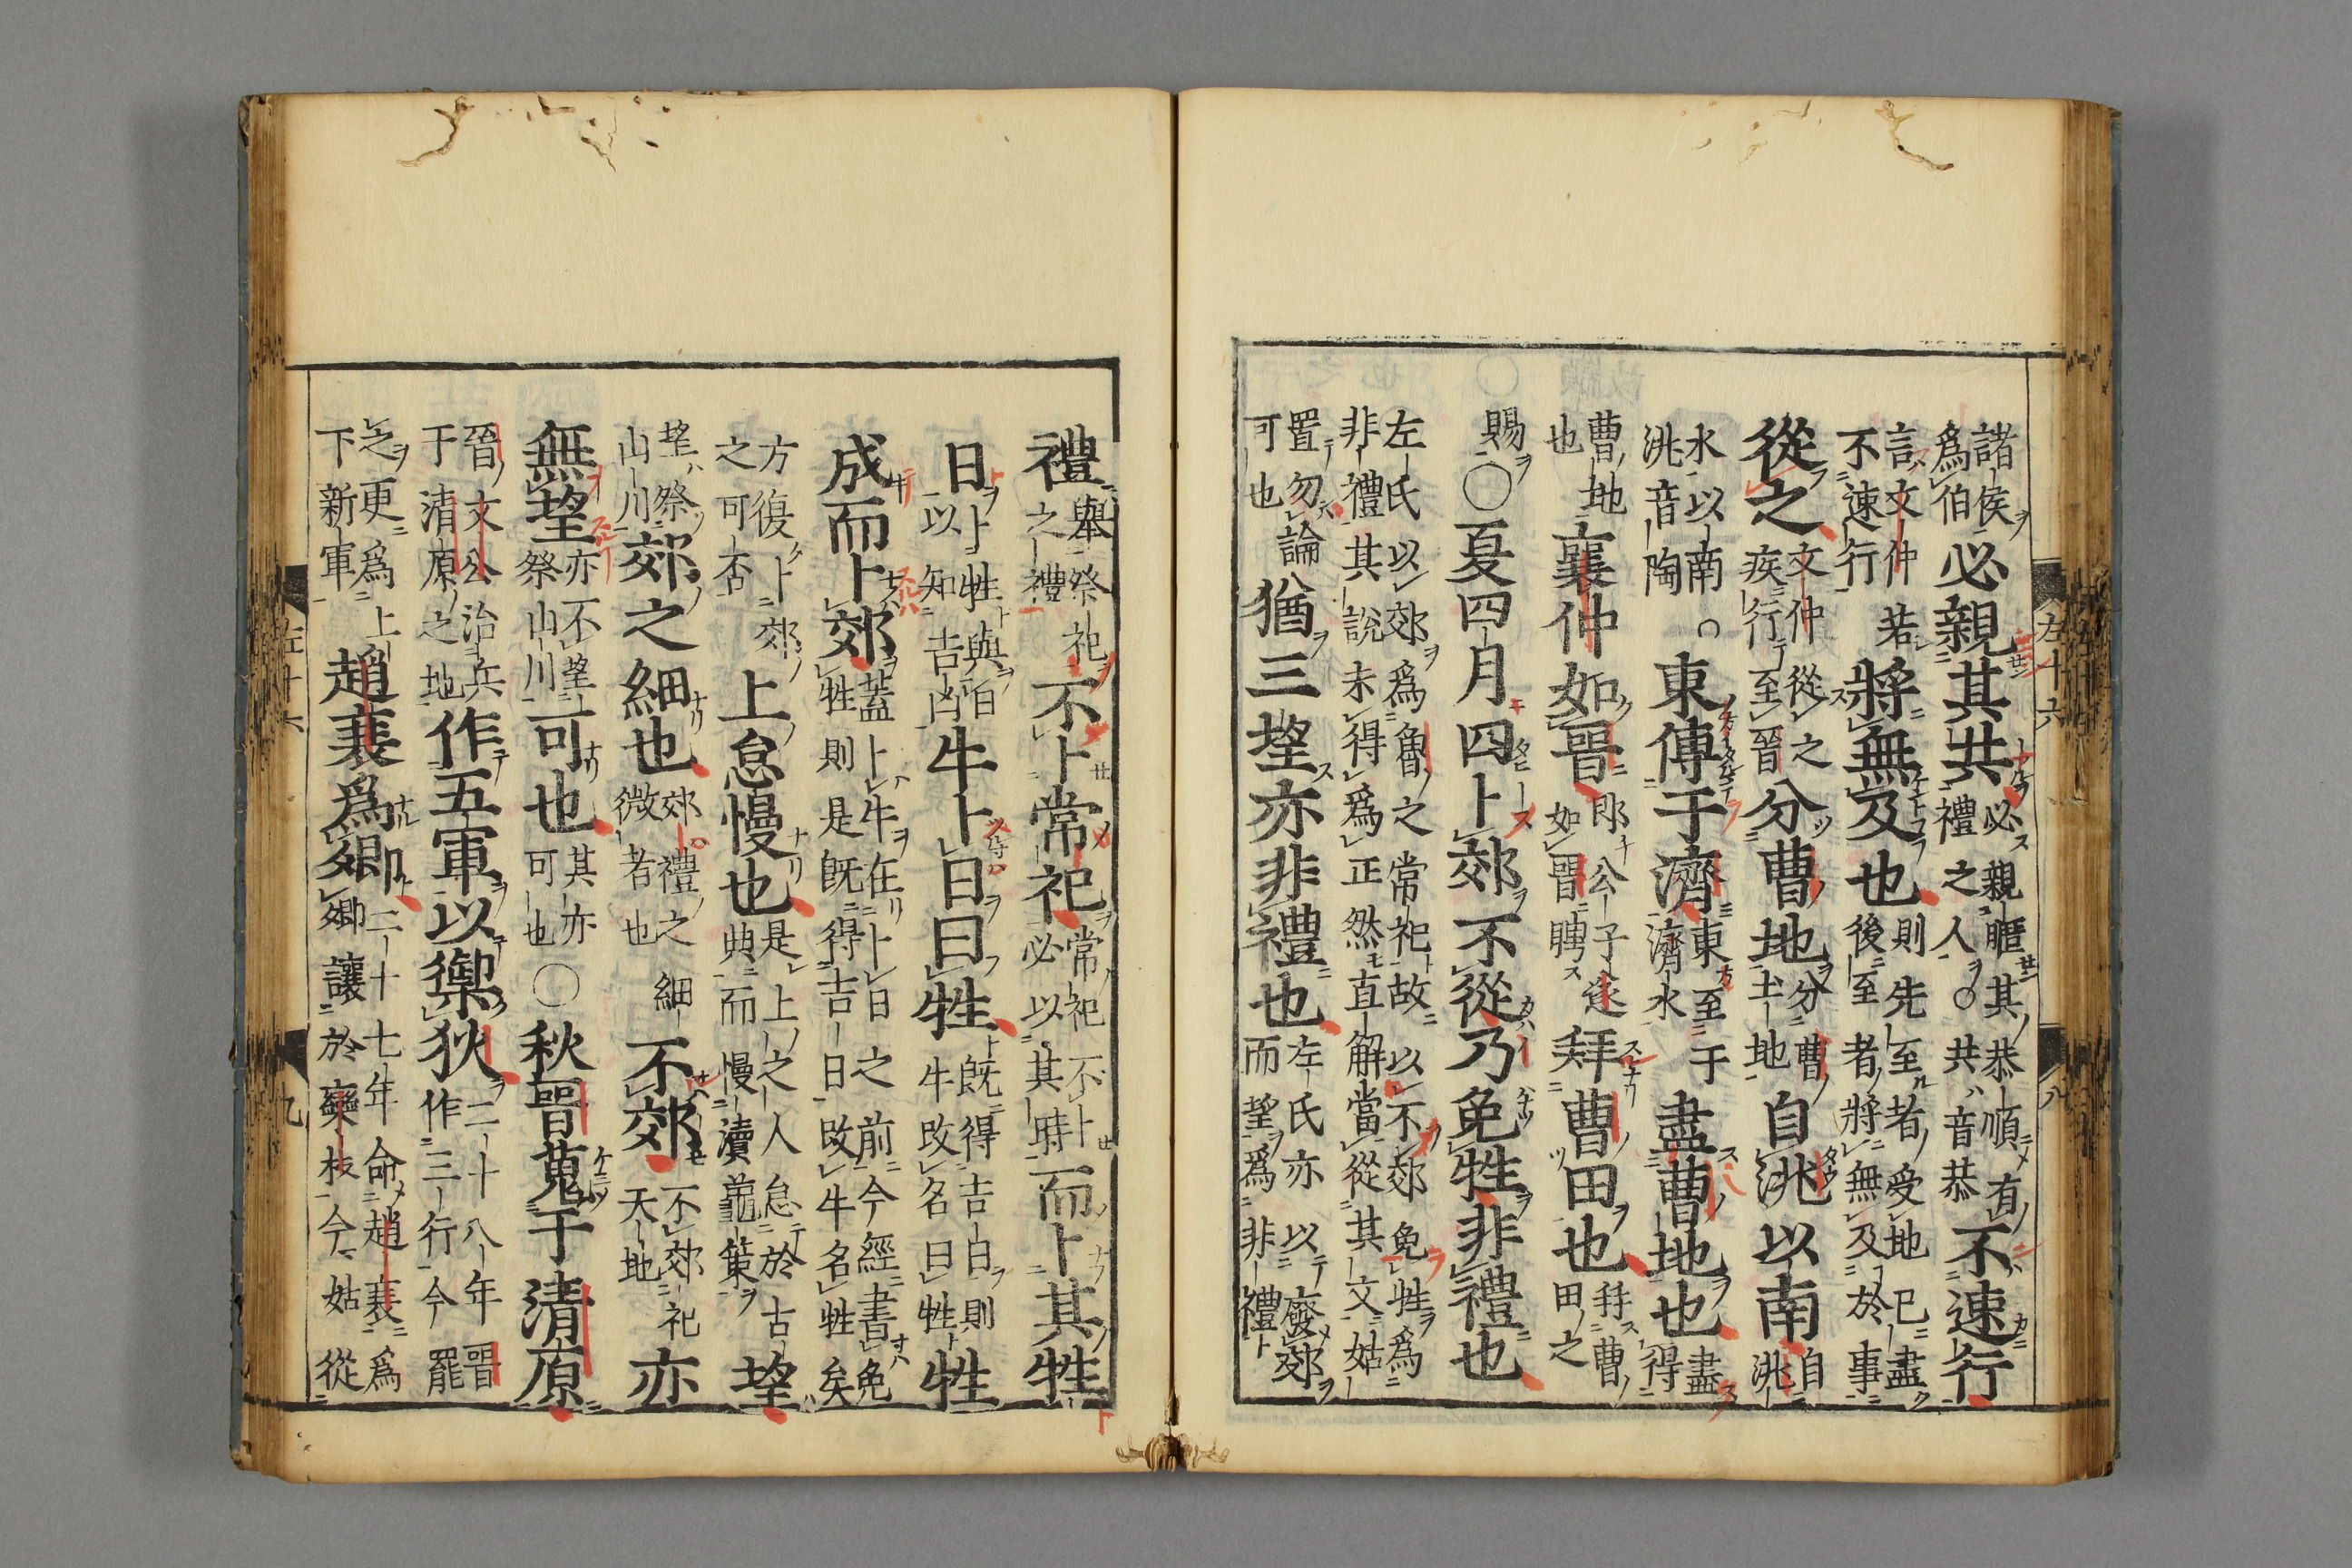 諸侯爲伯必親其共必親暱其恭順有禮之人○共音恭不速行
言文仲若不速行將無及也則先至者受地已盡後至者將無及於事
從之文仲從之疾行至晉分曹地分曹土地自洮以南自洮
水以南洮音陶○東傅于濟東至于濟水盡曹地也盡得
曹地也襄仲如晉即公子遂如晉聘拜曹田也拜曹田之
賜○夏四月四卜郊不從乃免牲非禮也
左氏以郊爲魯之常祀故以不郊免牲爲非禮其說未得爲正然直解當從其文姑
置勿論可也猶三望亦非禮也左氏亦以廢郊而望爲非禮
左十六 八
禮舉祭祀之禮不卜常祀常祀不卜必以其時而卜其牲
日卜牲與日以知吉凶牛卜日曰牲既得吉日則牛改名曰牲牲
成而卜郊蓋卜牛在卜日之前今經書免牲則是既得吉日改牛名牲矣
方復卜郊之可否上怠慢也是上之人怠於古典而慢瀆龜策望
望祭山川郊之細也郊禮之細微者也不郊不郊祀天地亦
無望亦不望祭山川可也其亦可也○秋晉蒐于清原
晉文公治兵于清原之地作五軍以禦狄二十八年晉作三行今罷
之更爲上下新軍趙衰爲卿二十七年命趙衰爲卿讓於欒枝今姑從
左十六 九